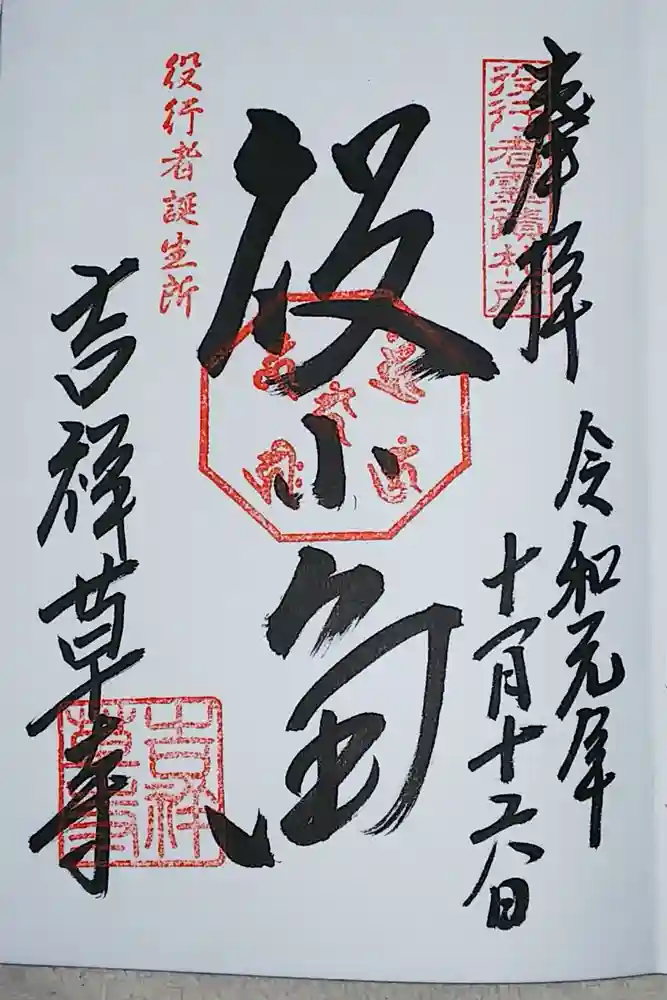 奉拝
役行者靈蹟札所
令和元年
十一月十六日
役小角
役行者誕生所
吉祥草寺
吉祥
草寺